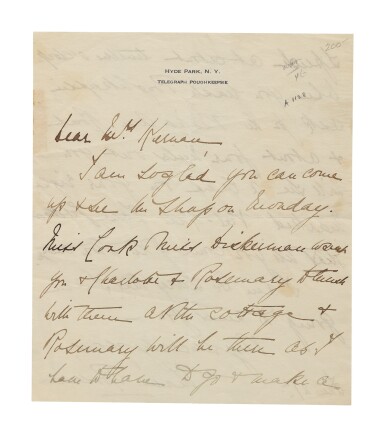 HYDE PARK, N. Y.
TELEGRAPH POUGHKEEPSIE
200
Dear Mrs Kernan,
I am so glad you can come
up & see the shop on Monday.
Miss Cook & Miss Dickerman want
you & Charlotte & Rosemary to lunch
with them at the cottage &
Rosemary will be then as I
have to leave to go & make a